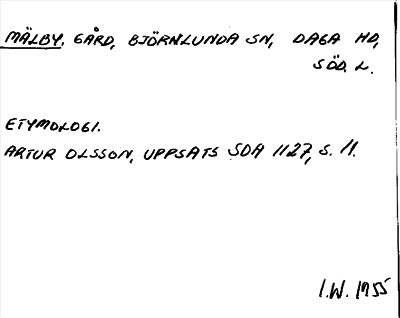 MÄLBY, GÅRD, BJÖRNLUNDA SN, DAGA HD,
SÖD. L.
ETYMOLOGI.
ARTUR OLSSON, UPPSATS SDA 1127, S. 11.
I.W. 1955